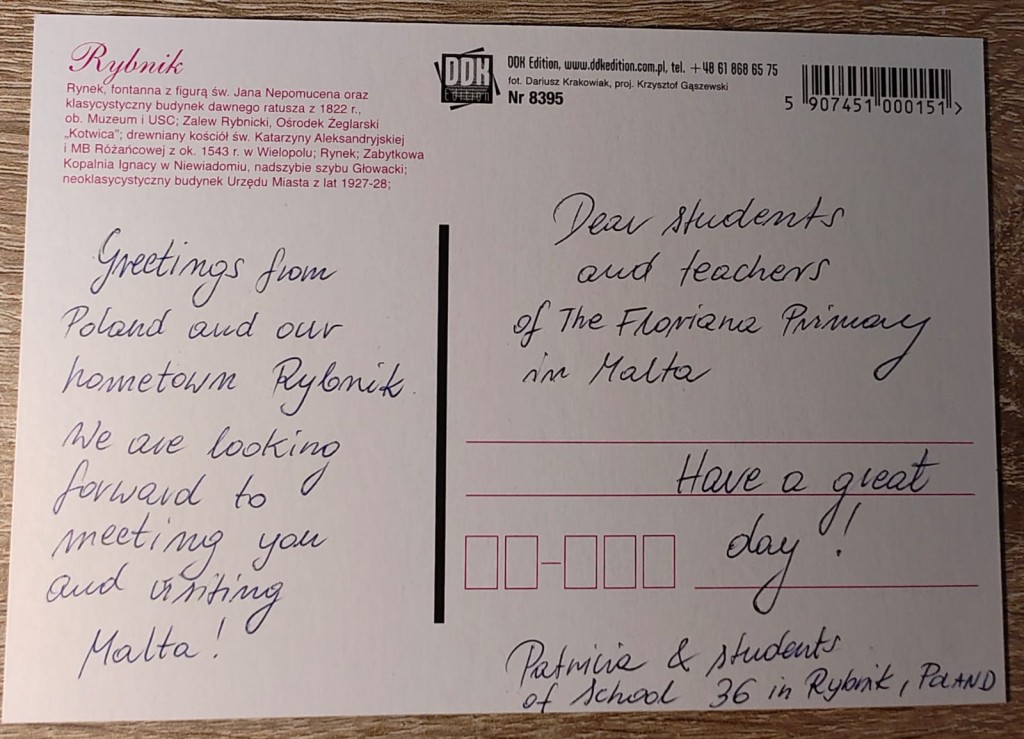 Rybnik
Rynek, fontanna z figurą św. Jana Nepomucena oraz
klasycystyczny budynek dawnego ratusza z 1822 r.,
ob. Muzeum i USC; Zalew Rybnicki, Ośrodek Żeglarski
„Kotwica"; drewniany kościół św. Katarzyny Aleksandryjskiej
i MB Różańcowej z ok. 1543 r. w Wielopolu; Rynek; Zabytkowa
Kopalnia Ignacy w Niewiadomiu, nadszybie szybu Głowacki;
neoklasycystyczny budynek Urzędu Miasta z lat 1927-28;
DDK
Edition
DDK Edition, www.ddkedition.com.pl, tel. +48 61 868 65 75
fot. Dariusz Krakowiak, proj. Krzysztof Gąszewski
Nr 8395
5 907451 000151 >
Greetings from
Poland and our
hometown Rybnik.
We are looking
forward to
meeting you
and visiting
Malta!
Dear students
and teachers
of The Floriana Primary
in Malta
Have a great
day!
Patricia & students
of School 36 in Rybnik, POLAND